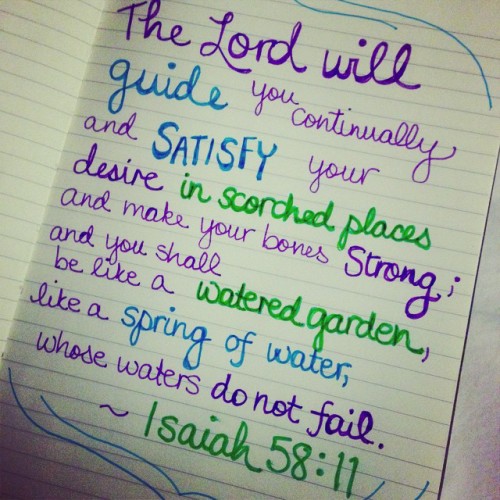 The Lord will
guide you continually,
and SATISFY your
desire in scorched places
and make your bones Strong;
and you shall
be like a watered garden,
like a spring of water,
whose waters do not fail.
~ Isaiah 58:11